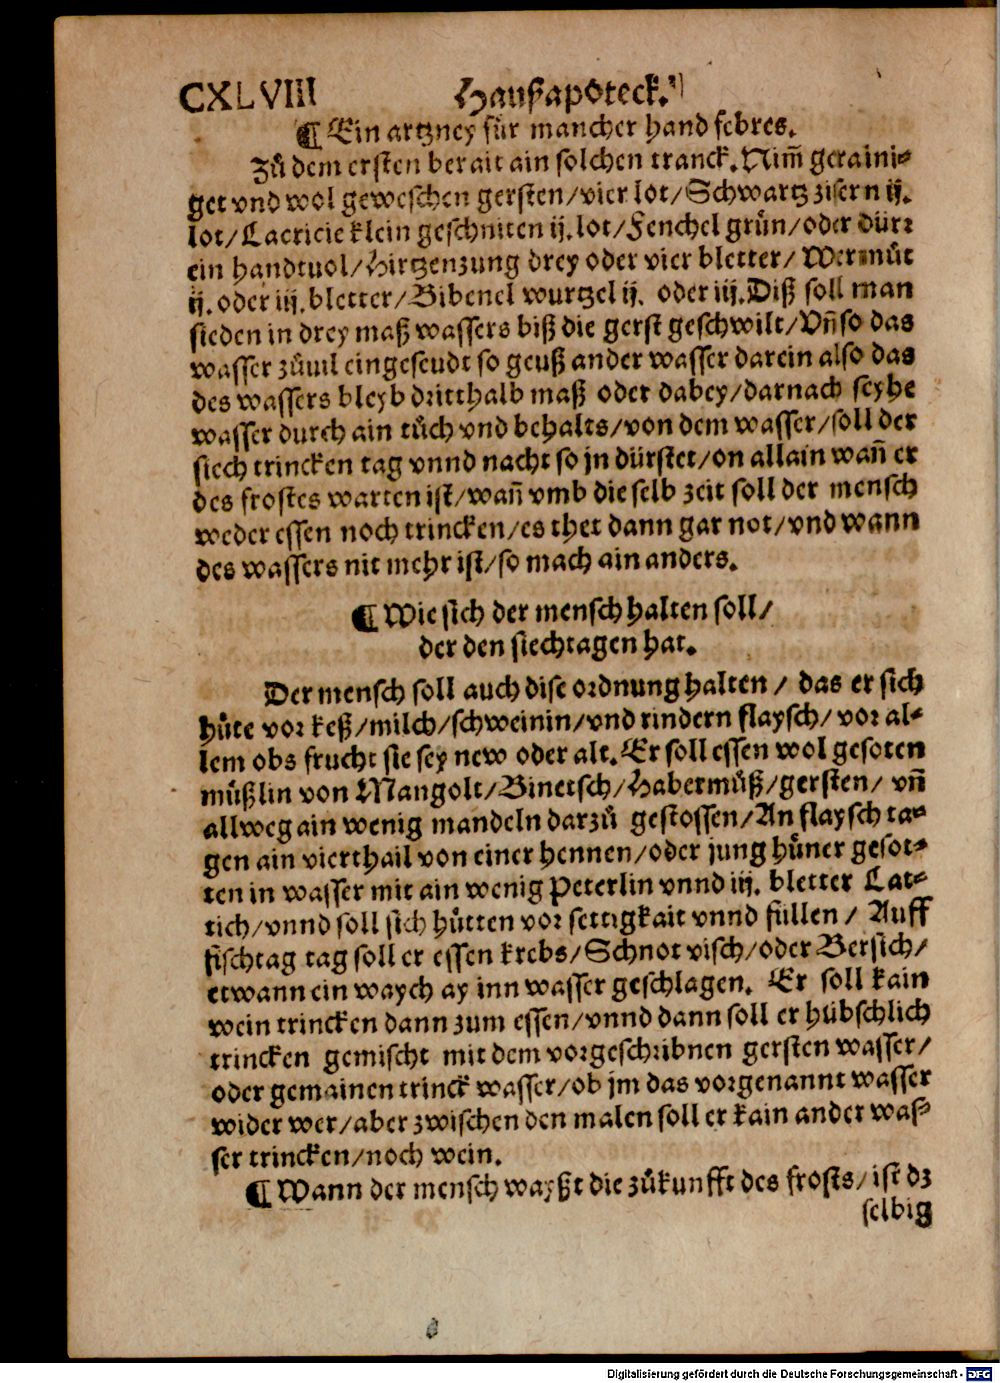 CXLVIII Haußapoteck.
¶ Ein artzney für mancher hand febres.
Zů dem ersten berait ain solchen tranck. Nim̄ geraini⸗
get vnd wol geweschen gersten/vier lot/Schwartz zisern ij.
lot/Lacricie klein geschniten ij.lot/Fenchel grůn/oder dürr
ein handtuol/Hirtzenzung drey oder vier bletter/Wermůt
ij. oder iij. bletter/Bibenel wurtzel ij. oder iij. Diß soll man
sieden in drey maß wassers biß die gerst geschwilt/Vn̄ so das
wasser zůuil eingeseudt so geuß ander wasser darein also das
des wassers bleyb dritthalb maß oder dabey/darnach seyhe
wasser durch ain tůch vnd behalts/von dem wasser/soll der
siech trincken tag vnnd nacht so jn dürstet/on allain wan̄ er
des frostes warten ist/wan̄ vmb die selb zeit soll der mensch
weder essen noch trincken/es thet dann gar not/vnd wann
des wassers nit mehr ist/so mach ain anders.
¶ Wie sich der mensch halten soll/
der den siechtagen hat.
Der mensch soll auch dise ordnung halten/ das er sich
hůte vor keß/milch/schweinin/vnd rindern flaysch/vor al⸗
lem obs frucht sie sey new oder alt. Er soll essen wol gesoten
můßlin von Mangolt/Binetsch/Habermůß/gersten/ vn̄
allweg ain wenig mandeln darzů gestossen/An flaysch ta⸗
gen ain vierthail von einer hennen/oder jung hůner gesot⸗
ten in wasser mit ain wenig Peterlin vnnd iij. bletter Lat⸗
tich/vnnd soll sich hůtten vor settigkait vnnd füllen/ Auff
fischtag tag soll er essen krebs/Schnot visch/oder Bersich/
etwann ein waych ay inn wasser geschlagen. Er soll kain
wein trincken dann zum essen/vnnd dann soll er hübschlich
trincken gemischt mit dem vorgeschribnen gersten wasser/
oder gemainen trinck wasser/ob jm das vorgenannt wasser
wider wer/aber zwischen den malen soll er kain ander was⸗
ser trincken/noch wein.
¶ Wann der mensch wayßt die zůkunfft des frosts/ist dz
selbig
Digitalisierung gefördert durch die Deutsche Forschungsgemeinschaft - DFG